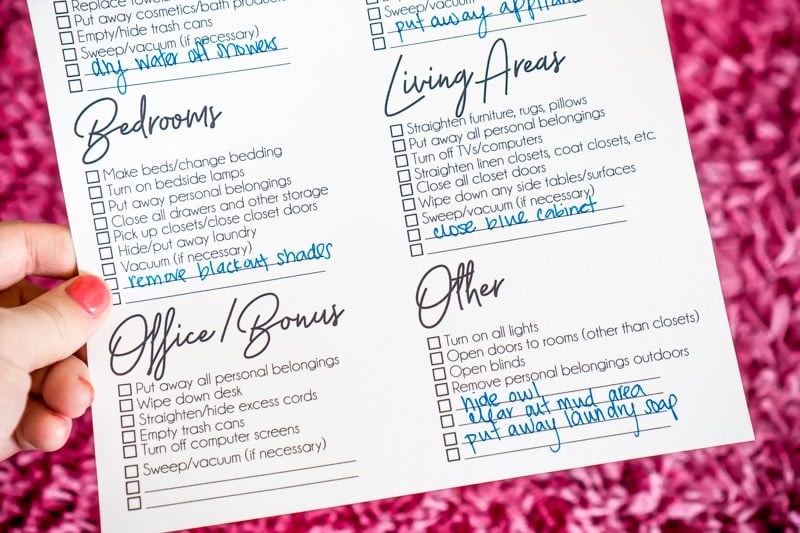 Replace
Put away cosmetics/bath products
Empty/hide trash cans
Sweep/vacuum (if necessary)
dry water off showers
Bedrooms
Make beds/change bedding
Turn on bedside lamps
Put away personal belongings
Close all drawers and other storage
Pick up closets/close closet doors
Hide/put away laundry
Vacuum (if necessary)
remove blackout shades
Office/Bonus
Put away all personal belongings
Wipe down desk
Straighten/hide excess cords
Empty trash cans
Turn off computer screens
Sweep/vacuum (if necessary)
Sweep/vacuum
put away
Living Areas
Straighten furniture, rugs, pillows
Put away all personal belongings
Turn off TVs/computers
Straighten linen closets, coat closets, etc.
Close all closet doors
Wipe down any side tables/surfaces
Sweep/vacuum (if necessary)
close blue cabinet
Other
Turn on all lights
Open doors to rooms (other than closets)
Open blinds
Remove personal belongings outdoors
hide owl
clear out mud area
put away laundry soap